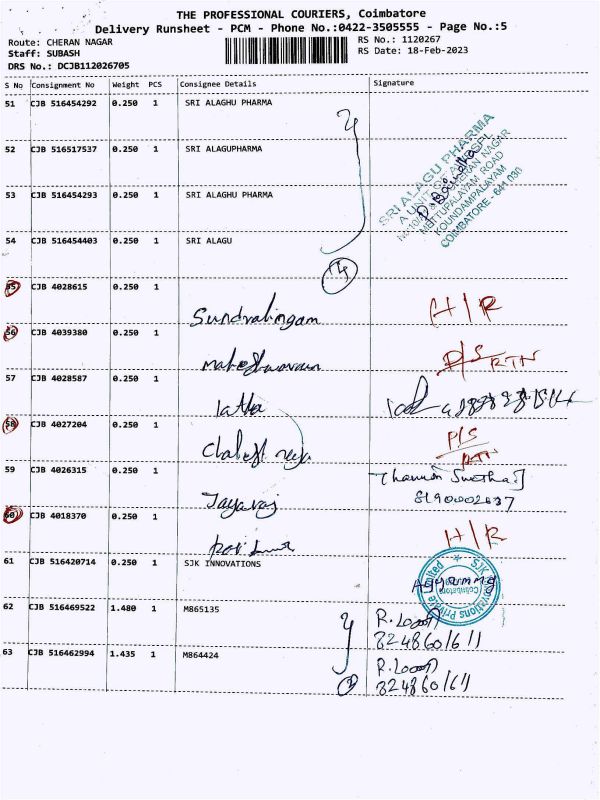 THE PROFESSIONAL COURIERS, Coimbatore
Delivery Runsheet - PCM - Phone No.:0422-3505555 - Page No.:5
Route: CHERAN NAGAR
RS No.: 1120267
Staff: SUBASH
RS Date: 18-Feb-2023
DRS No.: DCJB112026705
S No Consignment No Weight PCS Consignee Details Signature
51 CJB 516454292 0.250 1 SRI ALAGHU PHARMA
52 CJB 516517537 0.250 1 SRI ALAGUPHARMA
SRI ALAGU PHARMA
A UNIT OF
CHERAN NAGAR
METTUPALAYAM ROAD
KOUNDAMPALAYAM
COIMBATORE - 641 030
53 CJB 516454293 0.250 1 SRI ALAGHU PHARMA
54 CJB 516454403 0.250 1 SRI ALAGU
55 CJB 4028615 0.250 1
Sundralingam H/R
56 CJB 4039380 0.250 1
D/S RTN
57 CJB 4028587 0.250 1
latha
58 CJB 4027204 0.250 1
P/S
RTN
59 CJB 4026315 0.250 1
Jayaraj
8190002637
60 CJB 4018370 0.250 1
H/R
61 CJB 516420714 0.250 1 SJK INNOVATIONS
62 CJB 516469522 1.480 1 M865135
R.
824860/611
63 CJB 516462994 1.435 1 M864424
R.
824860/611